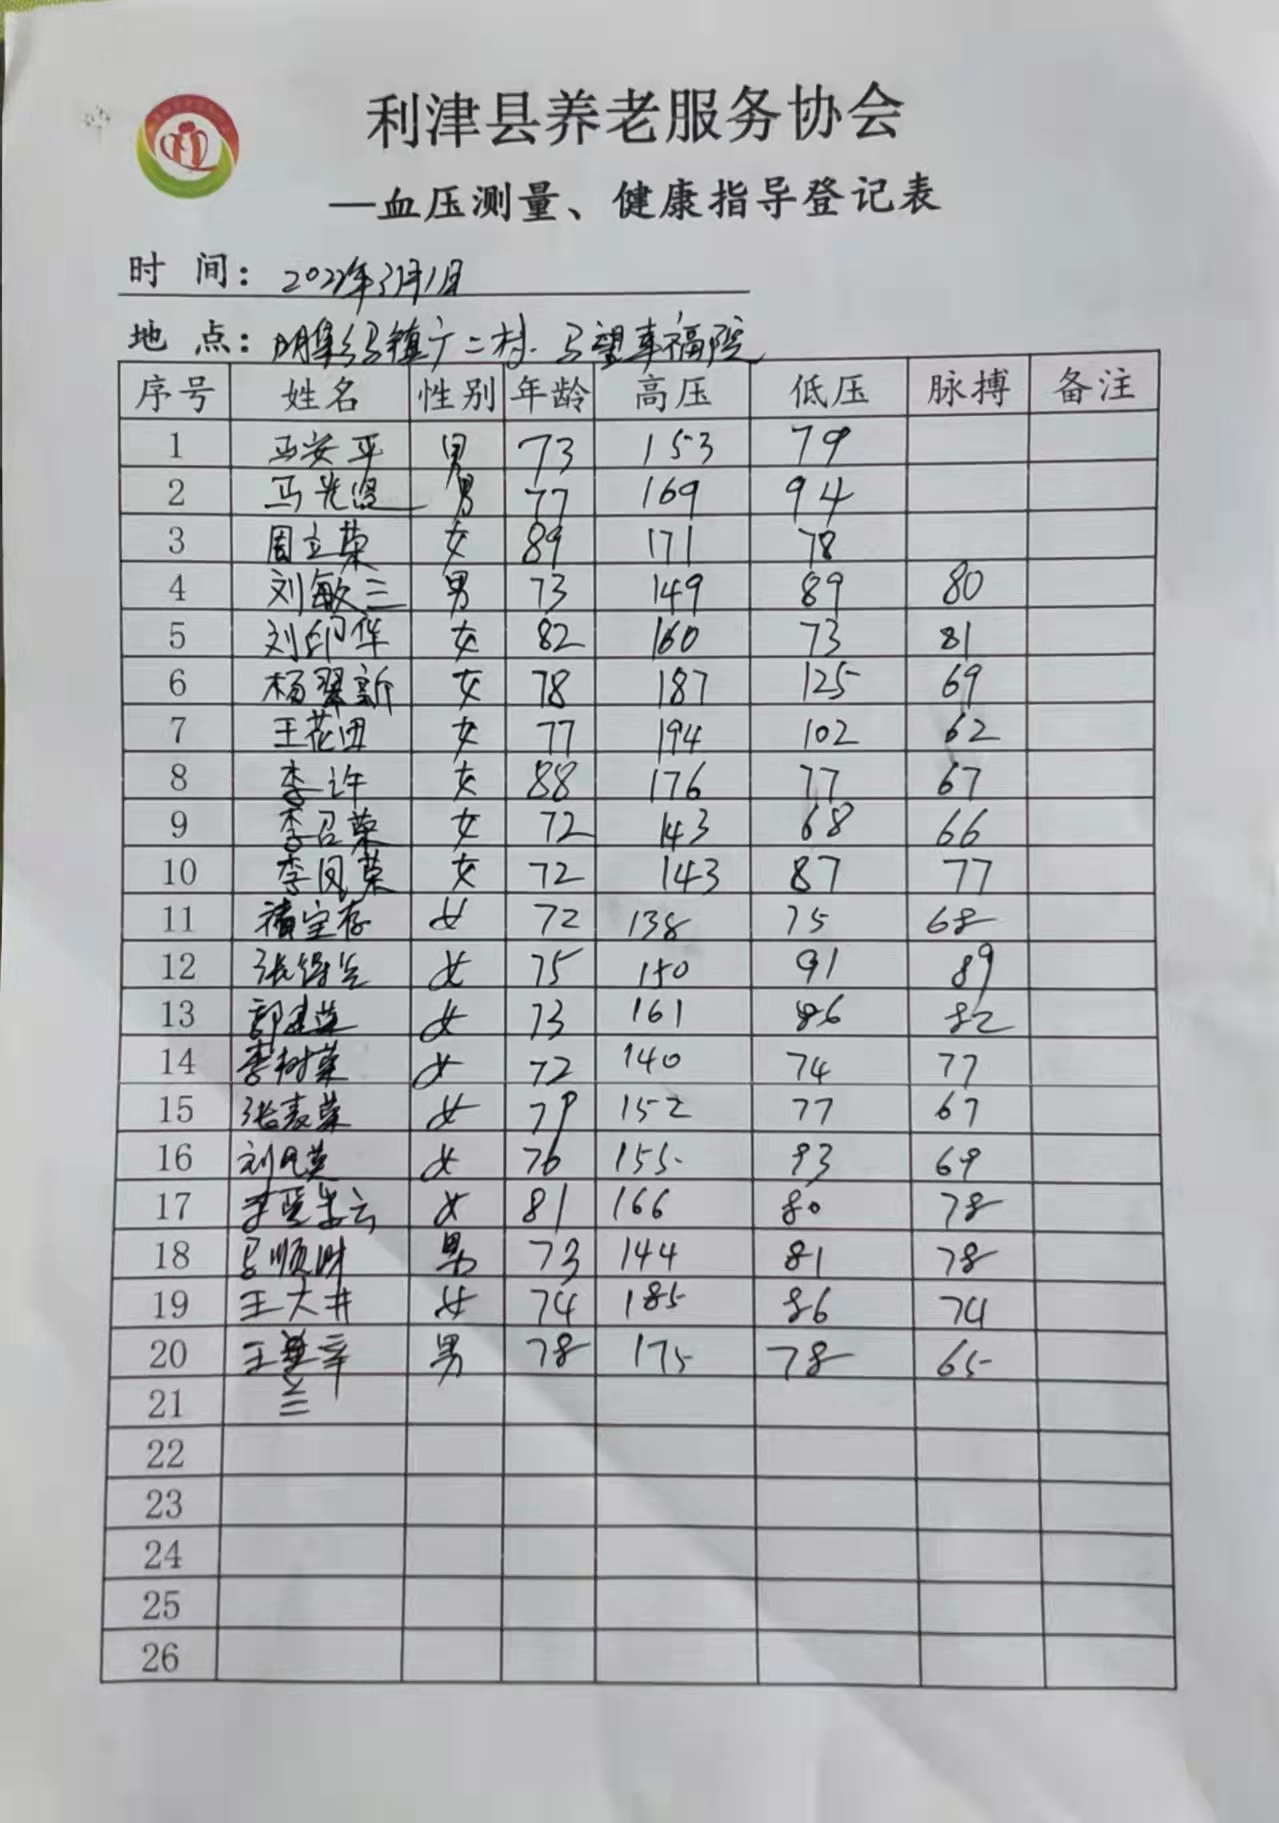 利津县养老服务协会
—血压测量、健康指导登记表
时 间： 2022年3月1日
地 点： 明集乡 镇 二村. 马望幸福院
序号 姓名 性别 年龄 高压 低压 脉搏 备注
1 马安平 男 73 153 79
2 马光 男 77 169 94
3 周立荣 女 89 171 78
4 刘敏三 男 73 149 89 80
5 刘印华 女 82 160 73 81
6 杨翠新 女 78 187 125 69
7 王花田 女 77 194 102 62
8 李许 女 88 176 77 67
9 李召荣 女 72 143 68 66
10 李凤荣 女 72 143 87 77
11 宝存 女 72 138 75 68
12 张 兰 女 75 150 91 89
13 郭建英 女 73 161 86 82
14 李树荣 女 72 140 74 77
15 张 荣 女 79 152 77 67
16 刘凤英 女 76 155 93 69
17 李 云 女 81 166 80 78
18 马顺财 男 73 144 81 78
19 王大井 女 74 185 86 74
20 王 辛 男 78 175 78 65
21 兰
22
23
24
25
26